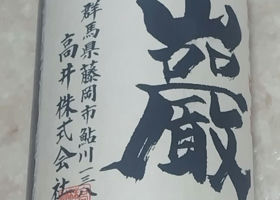 巖
群馬県藤岡市鮎川三
高井株式会社